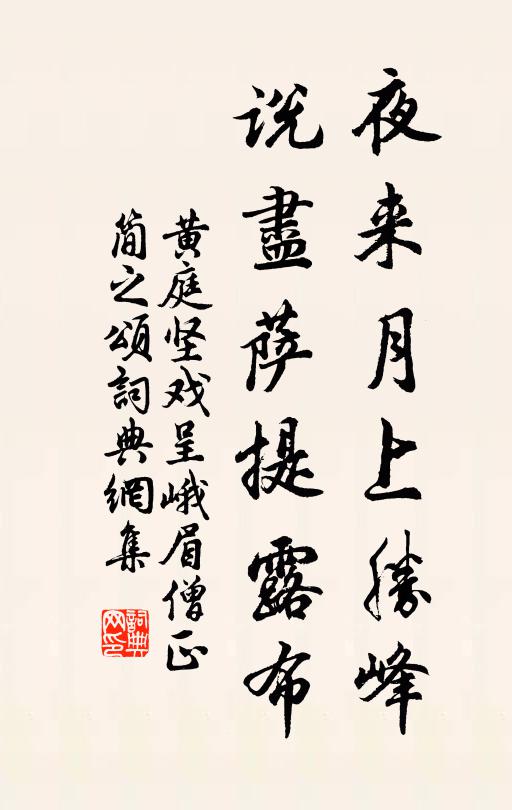 夜来月上勝峰
说盡菩提露布
黄庭坚戏呈峨眉僧正
简之颂詞典網集
詞典
网印